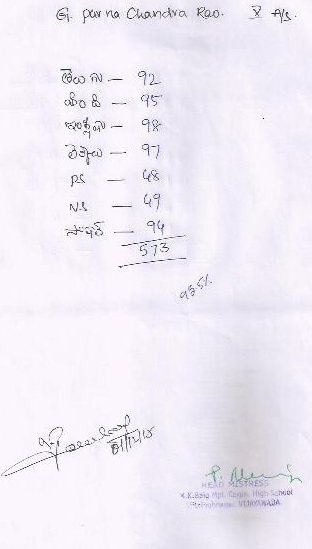 G. purna Chandra Rao. X A/S
తెలుగు — 92
హిందీ — 95
ఇంగ్లీషు — 98
లెక్కలు — 97
PS — 48
NS — 49
సోషల్ — 94
573
95.5%
01/12/15
HEAD MISTRESS
Mpl. Corpn. High School
VIJAYAWADA